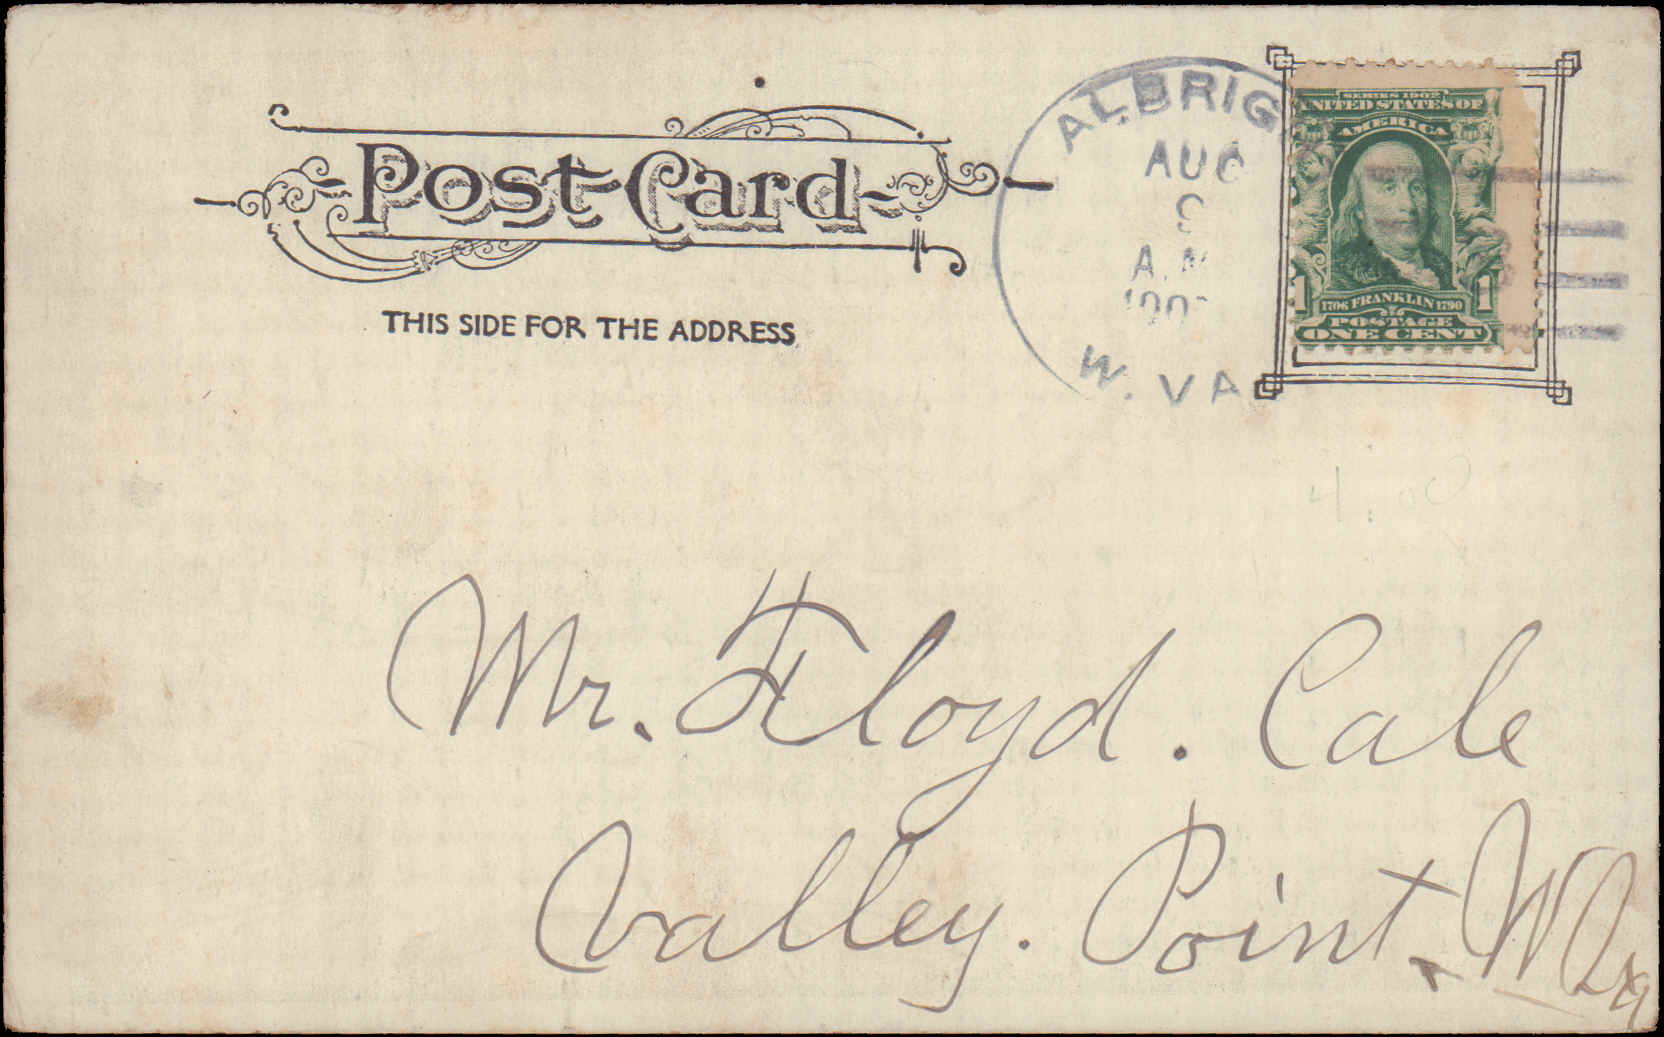 Post Card
THIS SIDE FOR THE ADDRESS
ALBRIG
AUG
9
A.M
190
W. VA
SERIES 1902
UNITED STATES OF
AMERICA
1 1
1706 FRANKLIN 1790
POSTAGE
ONE CENT
4.00
Mr. Floyd. Cale
Valley. Point. W Va